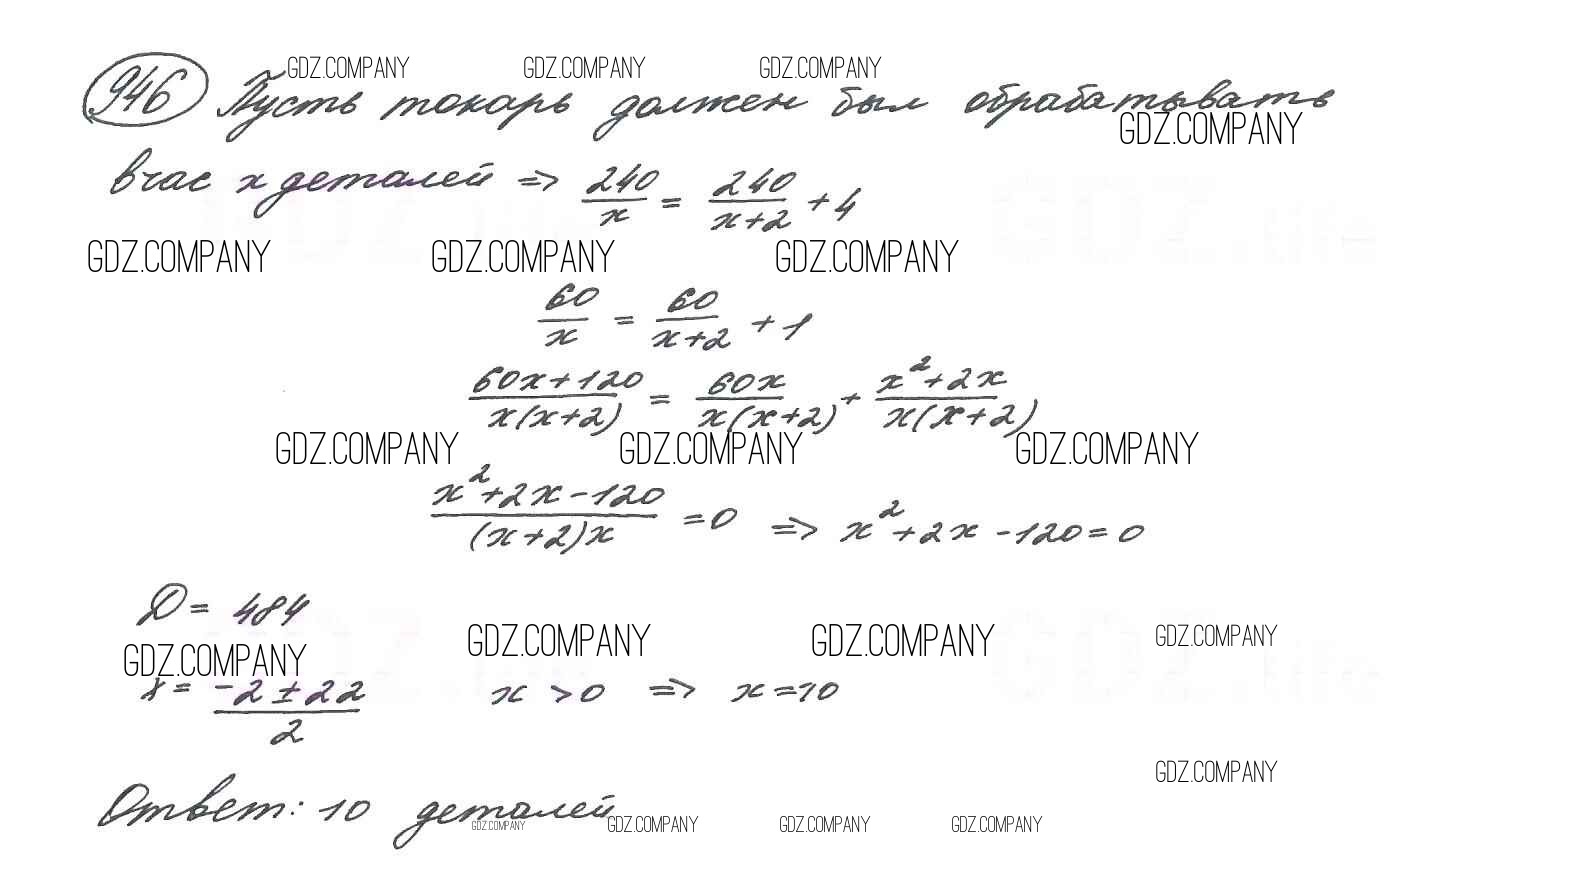 946 Пусть токарь должен был обрабатывать
GDZ.COMPANY GDZ.COMPANY GDZ.COMPANY
GDZ.COMPANY
в час x деталей => 240/x = 240/(x+2) + 4
GDZ.COMPANY GDZ.COMPANY GDZ.COMPANY
60/x = 60/(x+2) + 1
(60x+120)/(x(x+2)) = 60x/(x(x+2)) + (x²+2x)/(x(x+2))
GDZ.COMPANY GDZ.COMPANY GDZ.COMPANY
(x²+2x-120)/((x+2)x) = 0 => x²+2x-120=0
D = 484
GDZ.COMPANY GDZ.COMPANY GDZ.COMPANY GDZ.COMPANY
x = (-2±22)/2 x >0 => x=10
GDZ.COMPANY
Ответ: 10 деталей
GDZ.COMPANY GDZ.COMPANY GDZ.COMPANY GDZ.COMPANY